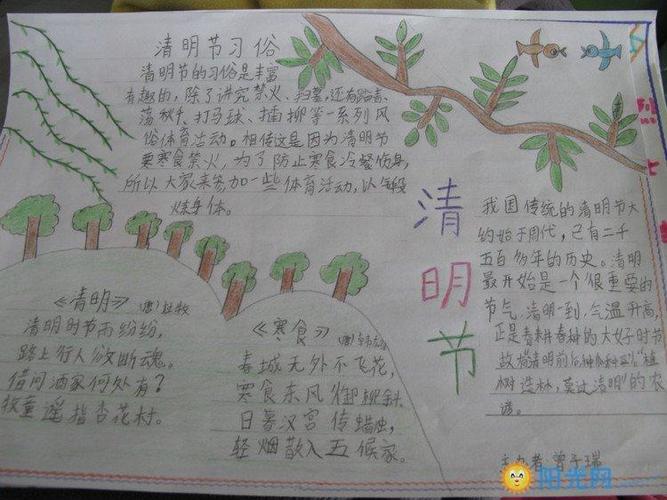 清明节习俗
清明节的习俗是丰富
有趣的，除了讲究禁火、扫墓，还有踏青、
荡秋千、打马球、插柳等一系列风
俗体育活动。相传这是因为清明节
要寒食禁火，为了防止寒食冷餐伤身，
所以大家来参加一些体育活动，以锻
炼身体。
清
明
节
我国传统的清明节大
约始于周代，已有二千
五百多年的历史。清明
最开始是一个很重要的
节气，清明一到，气温升高，
正是春耕春种的大好时节
故有清明前后，种瓜种豆。"植
树造林，莫过清明"的农
谚。
《清明》(唐)杜牧
清明时节雨纷纷，
路上行人欲断魂。
借问酒家何处有？
牧童遥指杏花村。
《寒食》
春城无外不飞花，
寒食东风御柳斜。
日暮汉宫传蜡烛，
轻烟散入五候家。
主办者 曾子瑞
阳光网